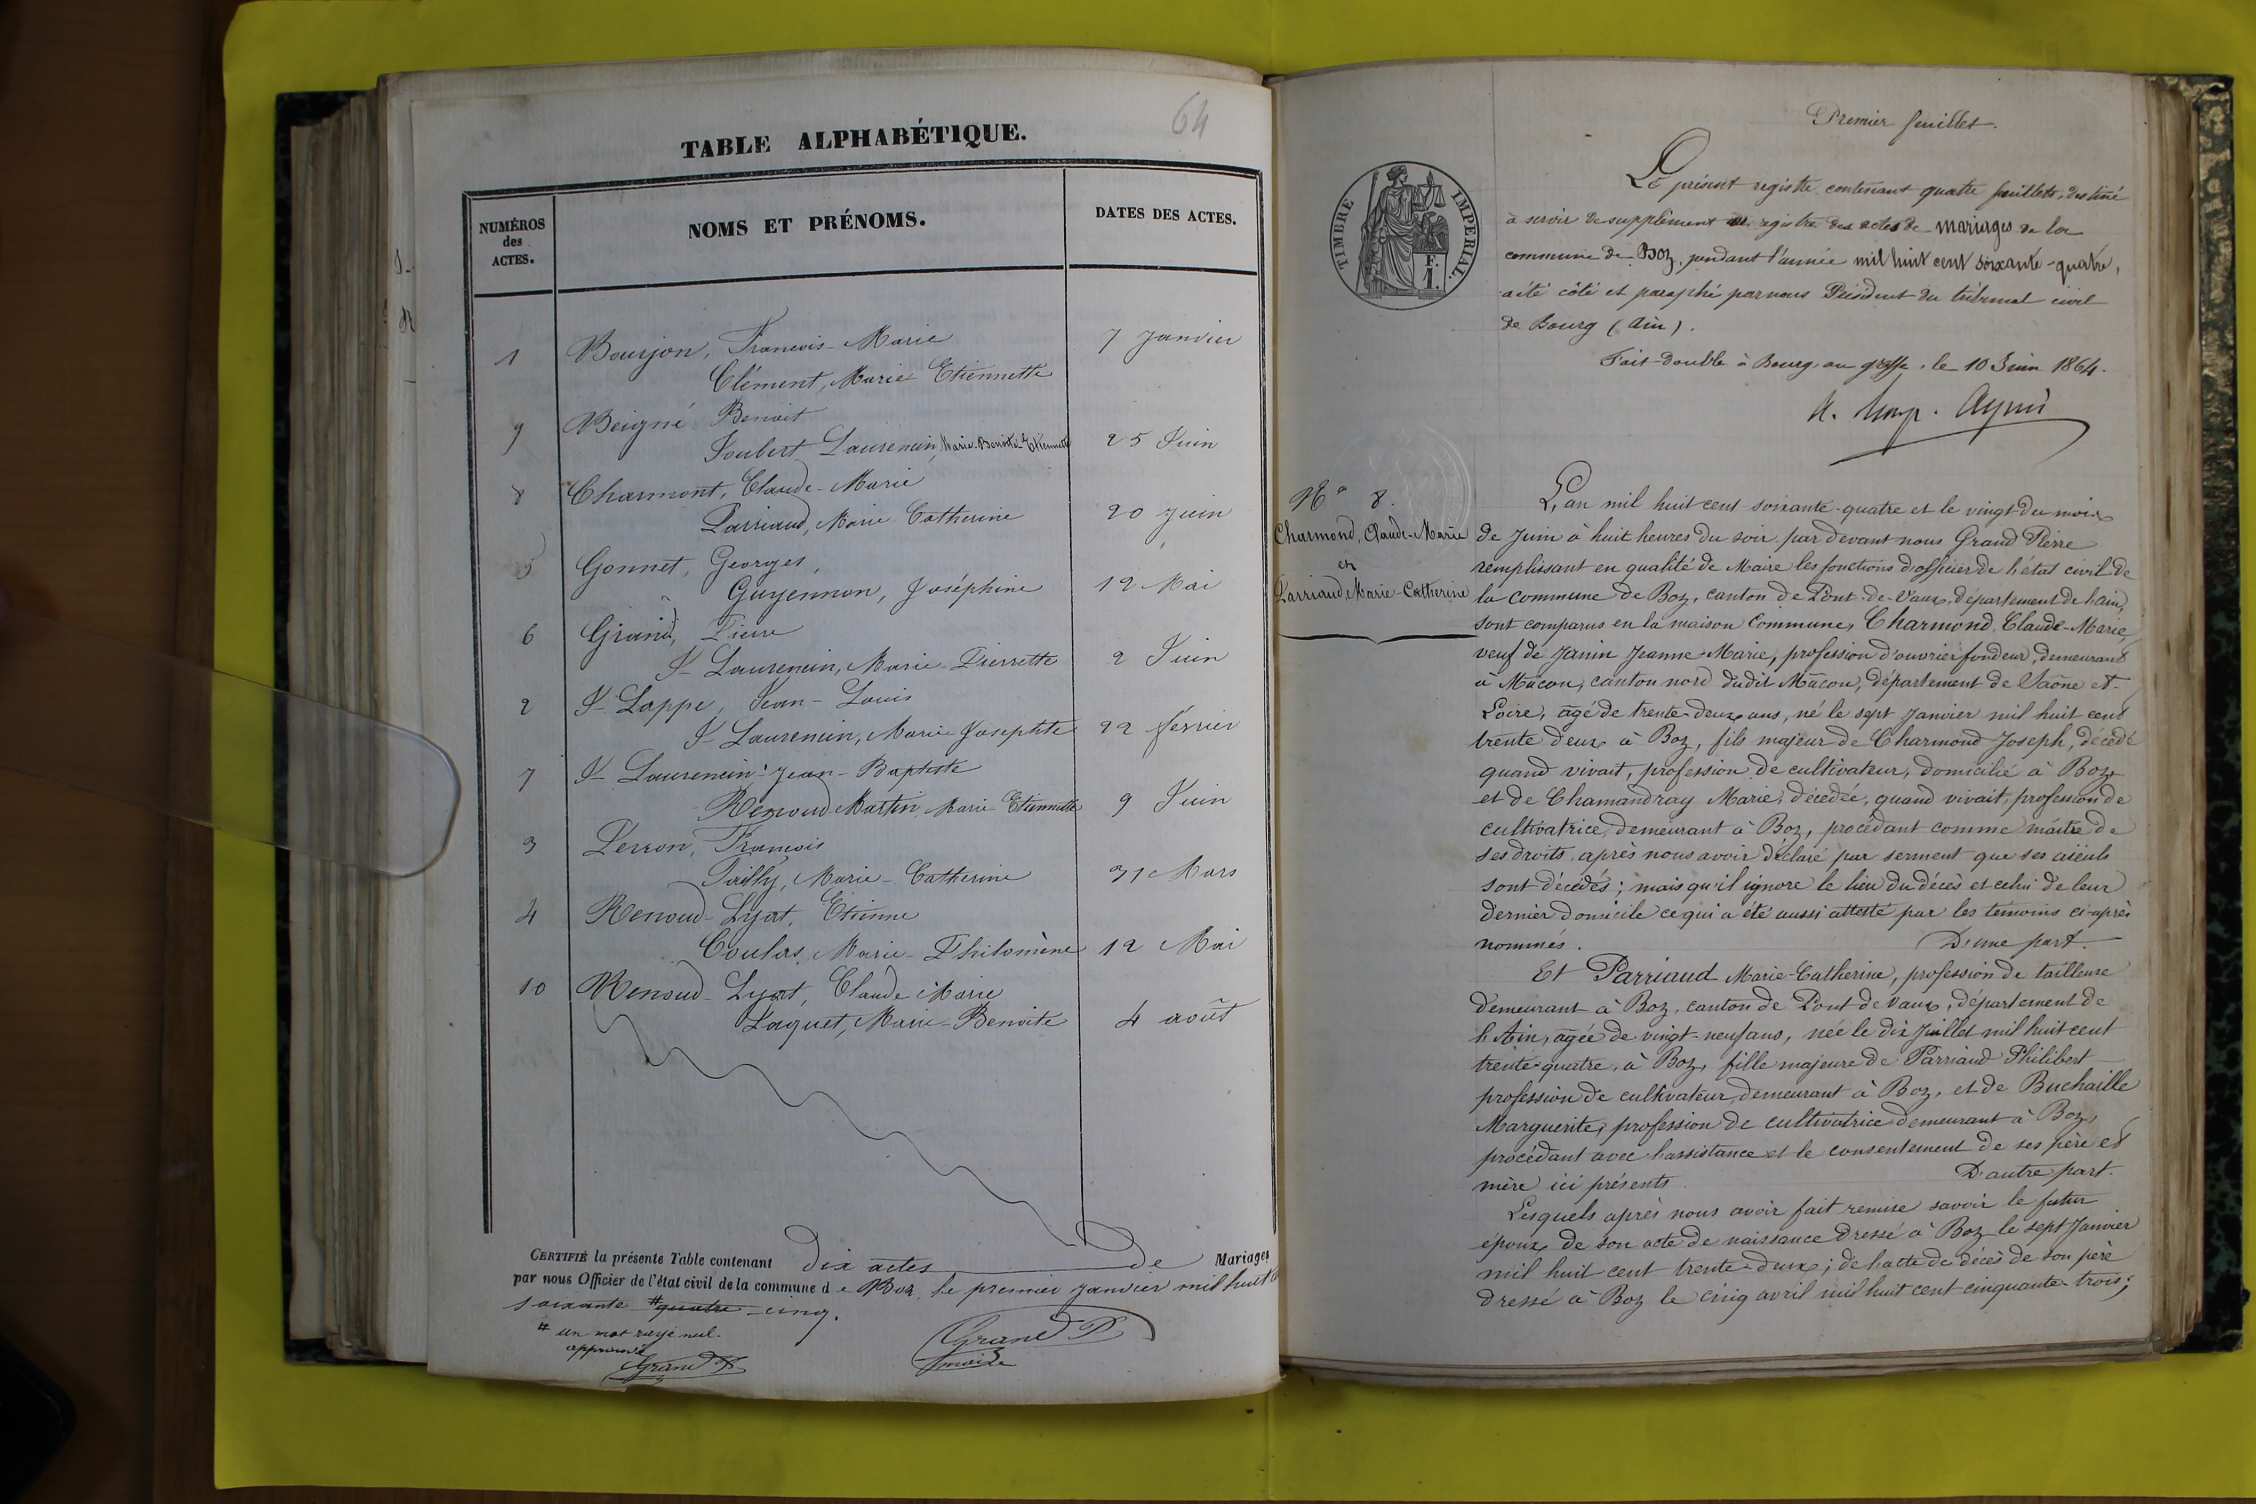 64
TABLE ALPHABÉTIQUE.
NUMÉROS des ACTES.
NOMS ET PRÉNOMS.
DATES DES ACTES.
1 Bourjon, Francois-Marie 7 Janvier
Clément, Marie Etiennette
9 Beigné Benoit
Joubert Laurencin, Marie-Benoite-Etiennette 25 Juin
8 Charmont, Claude-Marie
Parriaud, Marie Catherine 20 Juin
5 Gonnet, Georges,
Guyennon, Joséphine 12 Mai
6 Grand, Pierre
St Laurencin, Marie-Pierrette 2 Juin
2 St Lappe, Jean-Louis
St Laurencin, Marie Josephte 22 février
7 St Laurencin Jean-Baptiste
Renoud-Martin, Marie-Etiennette 9 Juin
3 Perron, Francois
Marie-Catherine 31 Mars
4 Renoud-Lyat, Etienne
Coulas, Marie-Philomène 12 Mai
10 Renoud-Lyat, Claude Marie
Paquet, Marie-Benoite 4 août
CERTIFIÉ la présente Table contenant dix actes de Mariages
par nous Officier de l'état civil de la commune de Boz, le premier janvier mil huit
soixante # quatre cinq.
# un mot rayé nul.
approuvé
Grand P
Grand P
maire
Premier feuillet.
TIMBRE IMPÉRIAL.
F.
1.
Le présent registre contenant quatre feuillets, destiné
à servir de supplément au registre des actes de mariages de la
commune de Boz, pendant l'année mil huit cent soixante-quatre,
a été côté et paraphé par nous Président du tribunal civil
de Bourg (Ain).
Fait double à Bourg, au greffe, le 10 Juin 1864.
N° 8.
Charmond, Claude-Marie
et
Parriaud, Marie-Catherine
L'an mil huit cent soixante-quatre et le vingt du mois
de Juin à huit heures du soir, par devant nous Grand Pierre
remplissant en qualité de Maire les fonctions d'officier de l'état civil de
la commune de Boz, canton de Pont-de-Vaux, département de l'ain,
sont comparus en la maison Commune, Charmond, Claude-Marie,
veuf de Janin Jeanne-Marie, profession d'ouvrier fondeur, demeurant
à Mâcon, canton nord dudit Mâcon, département de Saône et-
Loire, âgé de trente-deux ans, né le sept Janvier mil huit cent
trente deux à Boz, fils majeur de Charmond Joseph, décédé
quand vivait, profession de cultivateur, domicilié à Boz,
et de Chamandray Marie, décedée, quand vivait, profession de
cultivatrice, demeurant à Boz, procédant comme maître de
ses droits, après nous avoir déclaré par serment que ses aïeuls
sont décédés; mais qu'il ignore le lieu du décès et celui de leur
dernier domicile ce qui a été aussi attesté par les témoins ci-après
nommés. D'une part.
Et Parriaud Marie-Catherine, profession de tailleuse
demeurant à Boz, canton de Pont de Vaux, département de
l'Ain, âgée de vingt-neuf ans, née le dix Juillet mil huit cent
trente-quatre, à Boz, fille majeure de Parriaud Philibert
profession de cultivateur, demeurant à Boz, et de Buchaille
Marguerite, profession de cultivatrice demeurant à Boz,
procédant avec l'assistance et le consentement de ses père et
mère ici présents. D'autre part.
Lesquels après nous avoir fait remise savoir le futur
époux de son acte de naissance dressé à Boz le sept Janvier
mil huit cent trente-deux; de l'acte de décès de son père
dressé à Boz le cinq avril mil huit cent cinquante-trois;